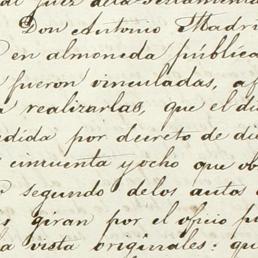 Juez dela Testamenta
Don Antonio Madri
en almoneda pública
fueron vinculadas, a
a realizarlas, que el di
edida por decreto de di
cincuenta y ocho que ob
segundo delos autos
giran por el oficio pu
la vista originales: qu